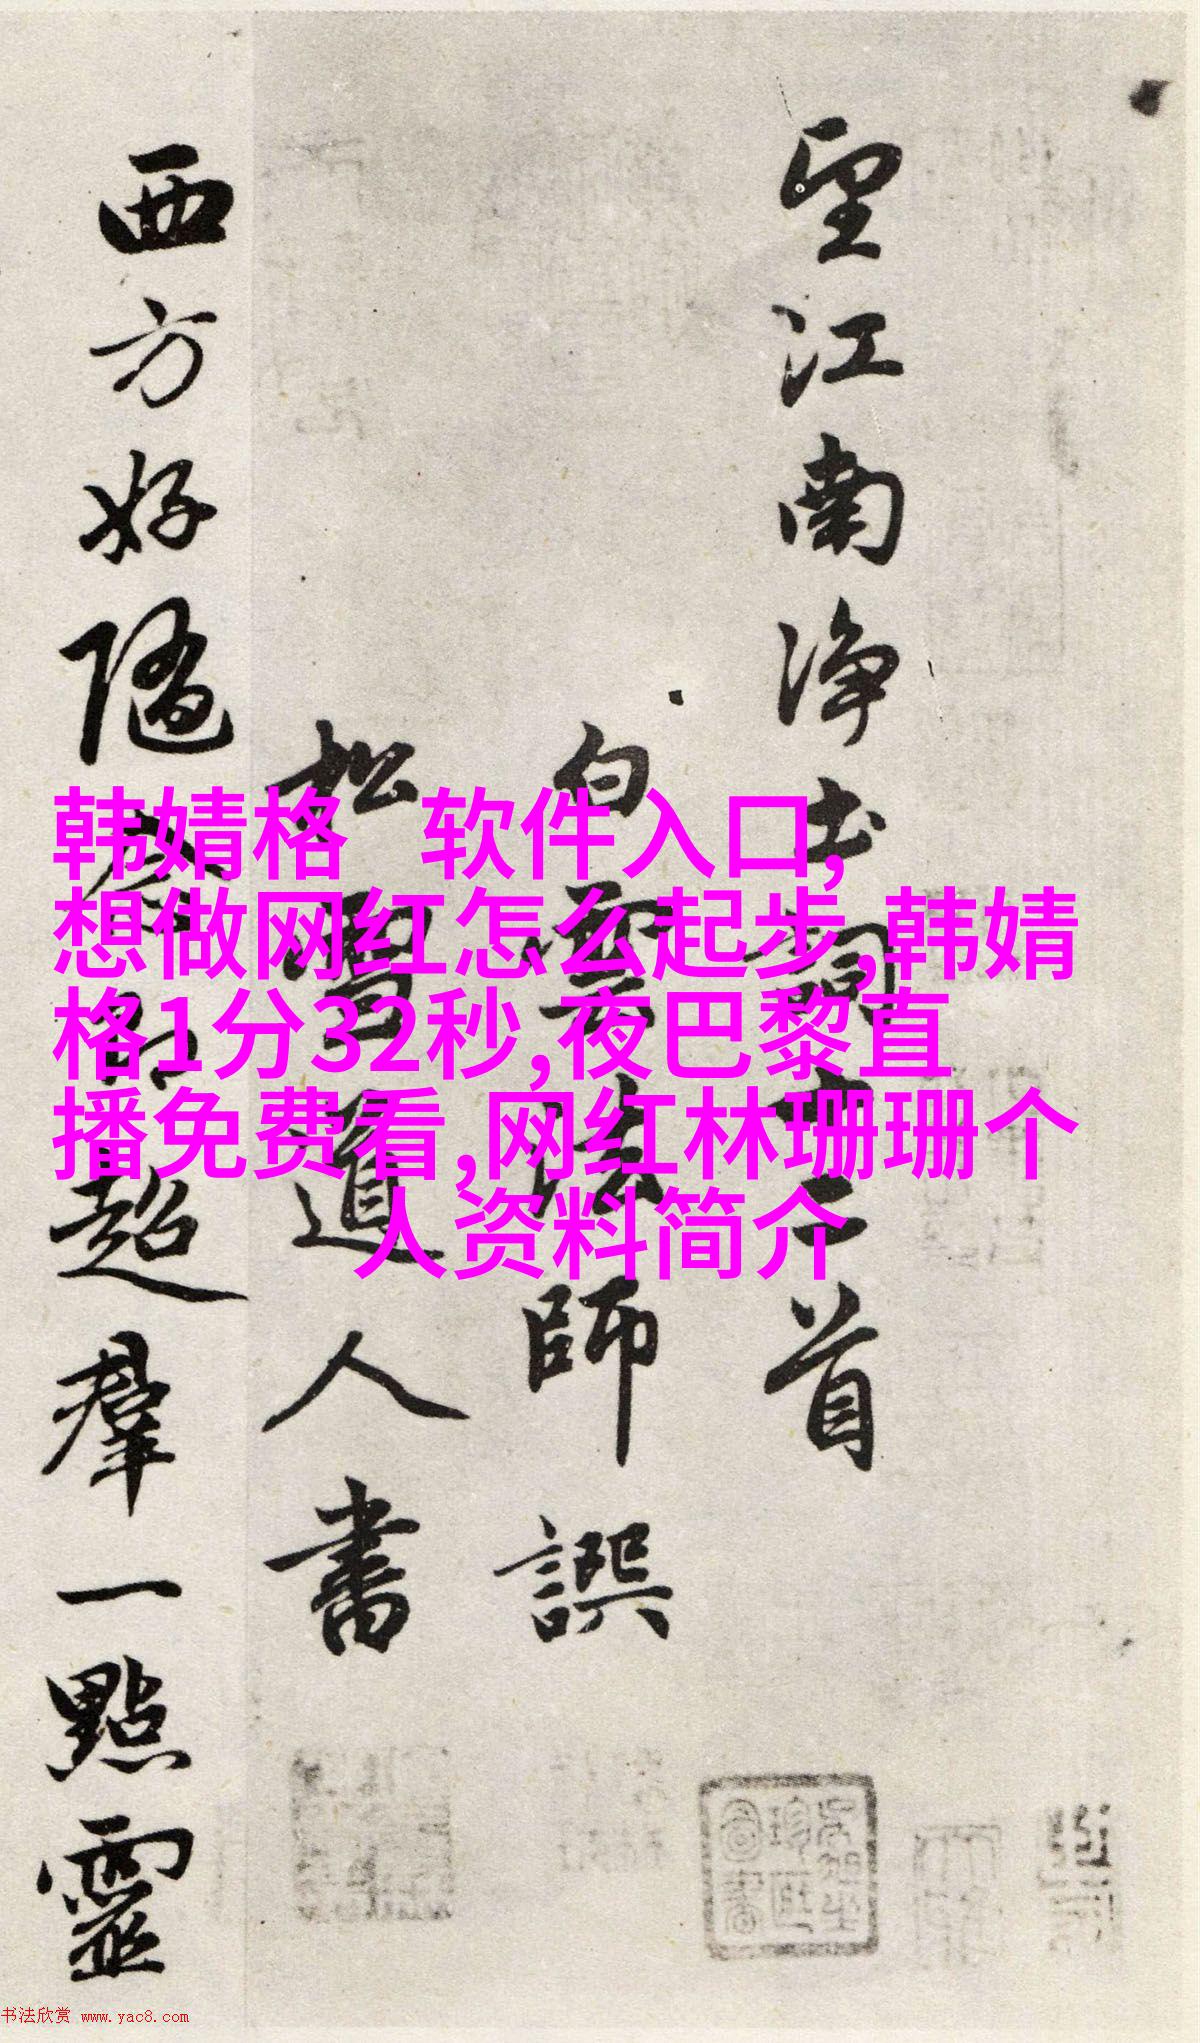 韩婧格 软件入口,
想做网红怎么起步,韩婧
格1分32秒,夜巴黎直
播免费看,网红林珊珊个
人资料简介
望江南净土词十二首
白云法师譔
松雪道人書
西方好隨念即超羣一點靈
书法欣赏 www.yac8.com